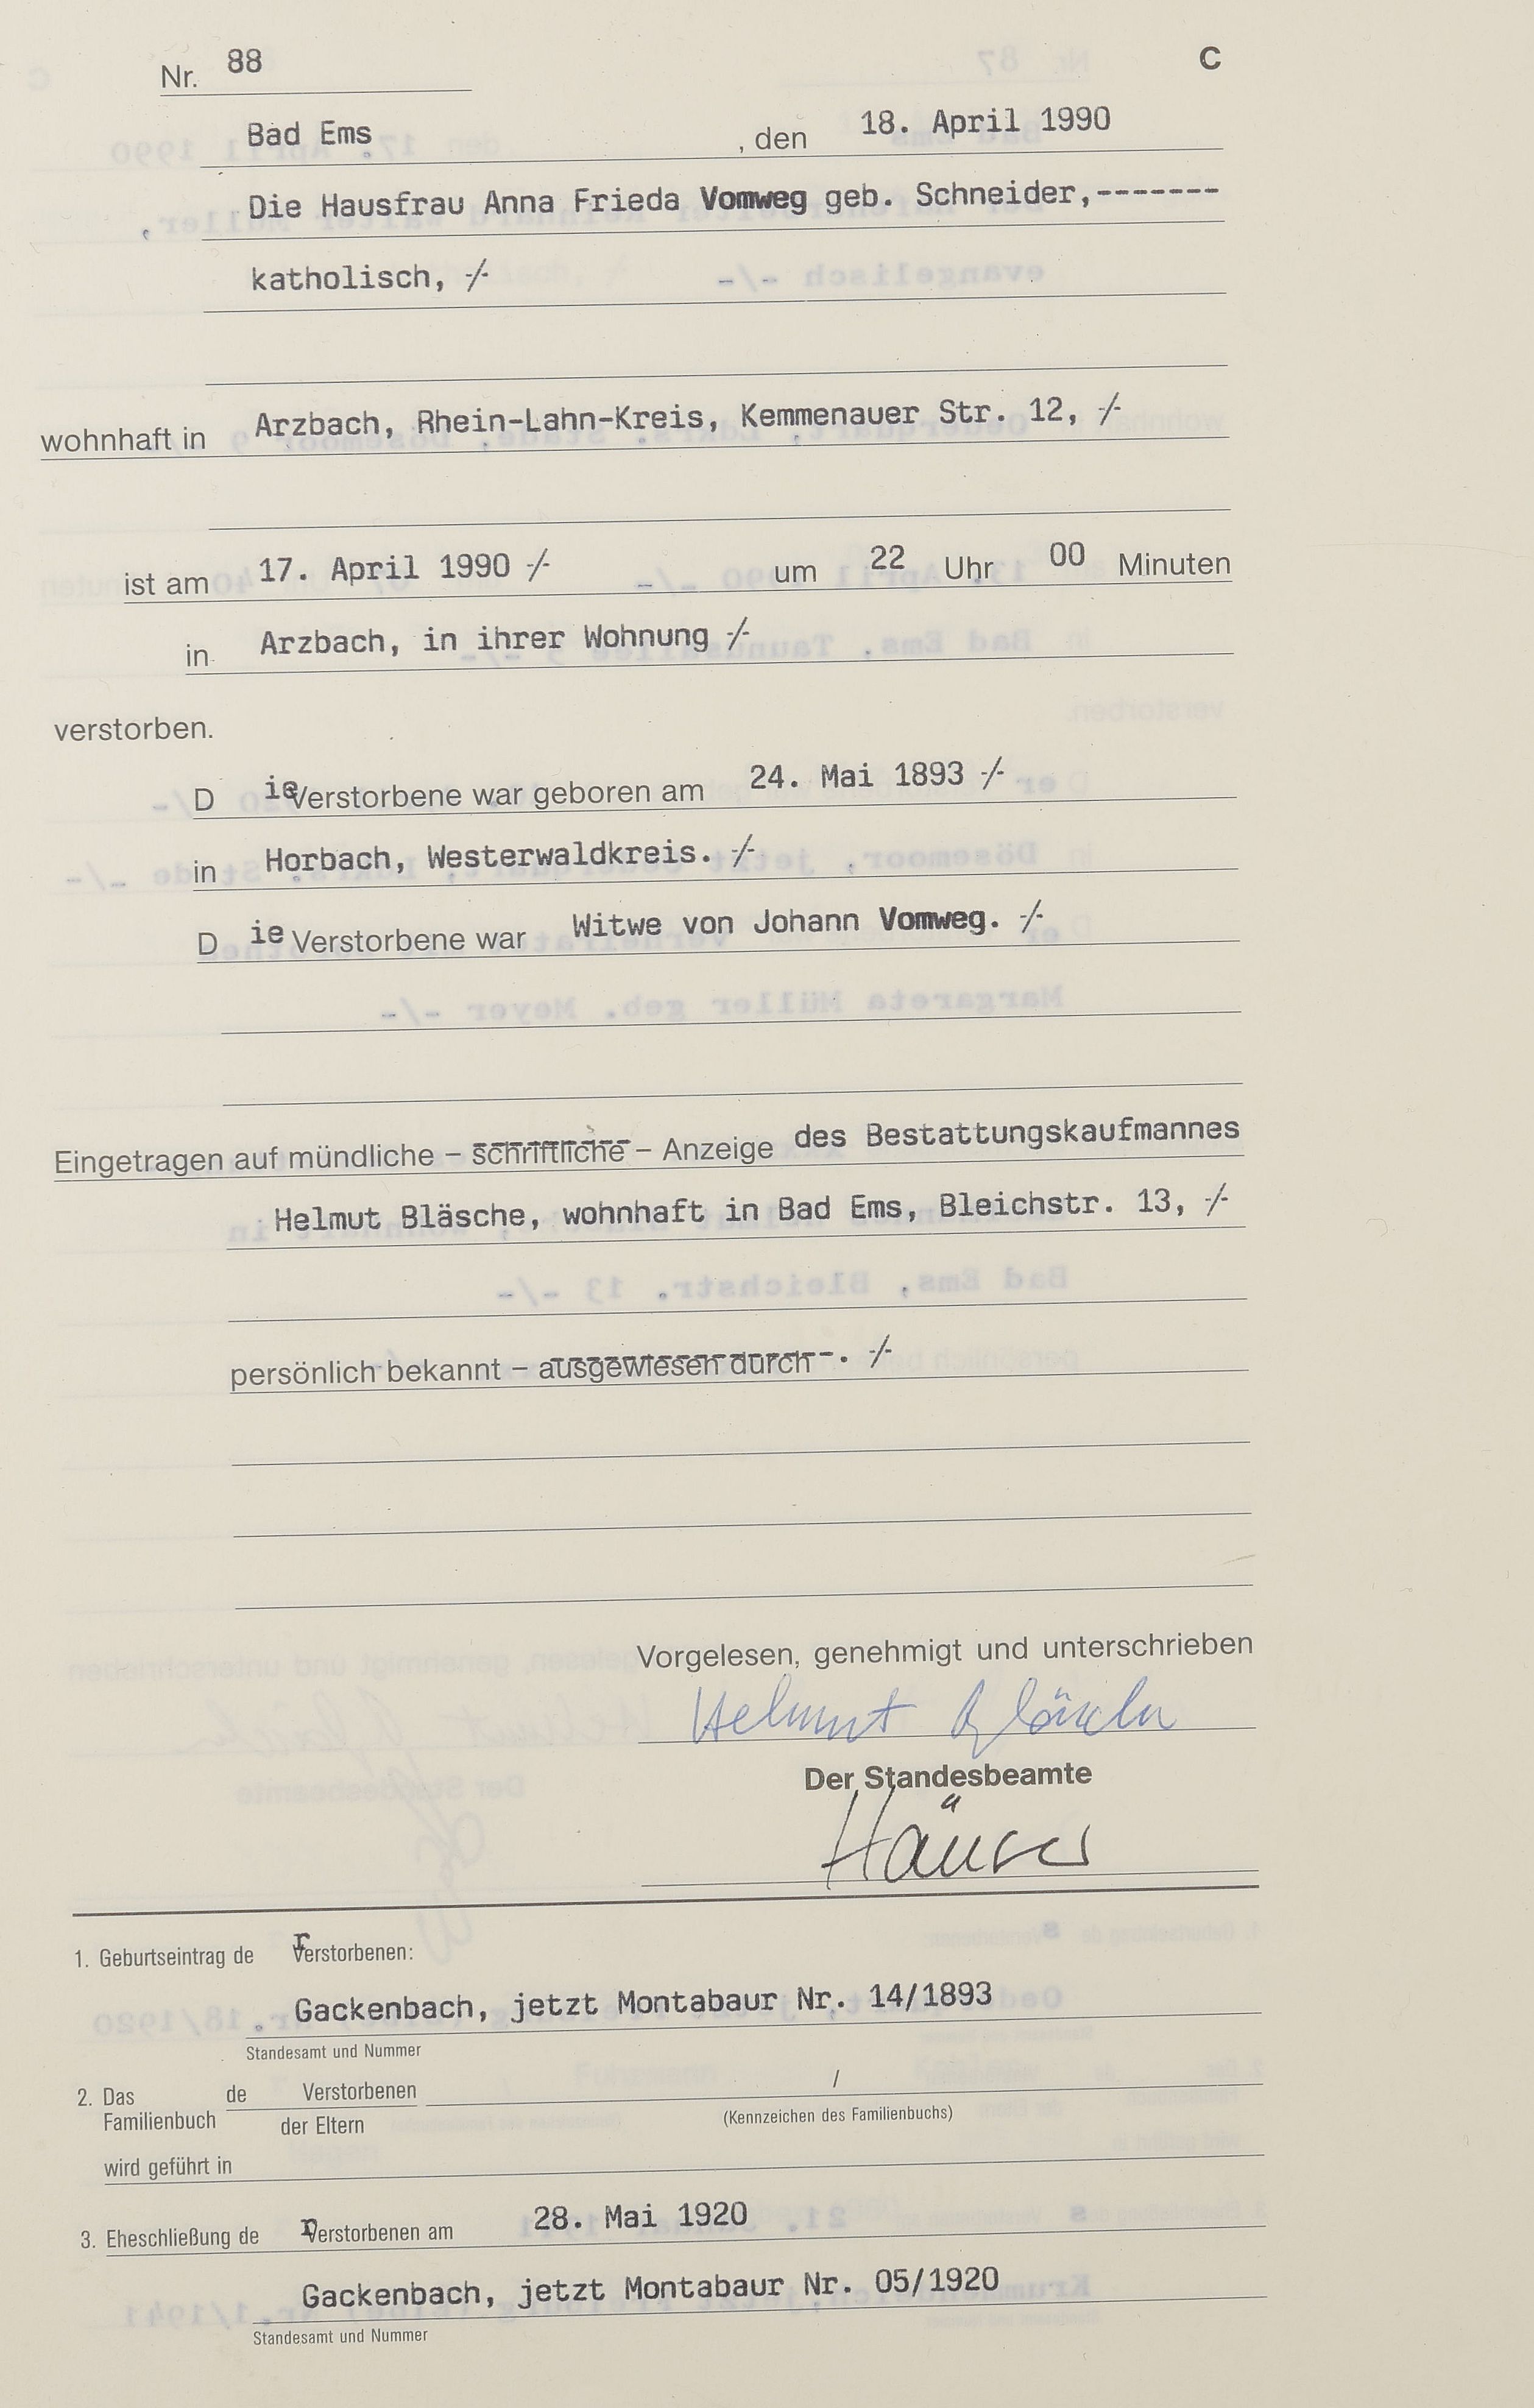 Nr. 88 C
Bad Ems , den 18. April 1990
Die Hausfrau Anna Frieda Vomweg geb. Schneider,-------
katholisch, -/-
wohnhaft in Arzbach, Rhein-Lahn-Kreis, Kemmenauer Str. 12, -/-
ist am 17. April 1990 -/- um 22 Uhr 00 Minuten
in Arzbach, in ihrer Wohnung -/-
verstorben.
D ie Verstorbene war geboren am 24. Mai 1893 -/-
in Horbach, Westerwaldkreis. -/-
D ie Verstorbene war Witwe von Johann Vomweg. -/-
Eingetragen auf mündliche – schriftliche – Anzeige des Bestattungskaufmannes
Helmut Bläsche, wohnhaft in Bad Ems, Bleichstr. 13, -/-
persönlich bekannt – ausgewiesen durch --. -/-
Vorgelesen, genehmigt und unterschrieben
Helmut Bläsche
Der Standesbeamte
Häuser
1. Geburtseintrag de r Verstorbenen:
Gackenbach, jetzt Montabaur Nr. 14/1893
Standesamt und Nummer
2. Das de Verstorbenen /
Familienbuch der Eltern (Kennzeichen des Familienbuchs)
wird geführt in
3. Eheschließung de r Verstorbenen am 28. Mai 1920
Gackenbach, jetzt Montabaur Nr. 05/1920
Standesamt und Nummer